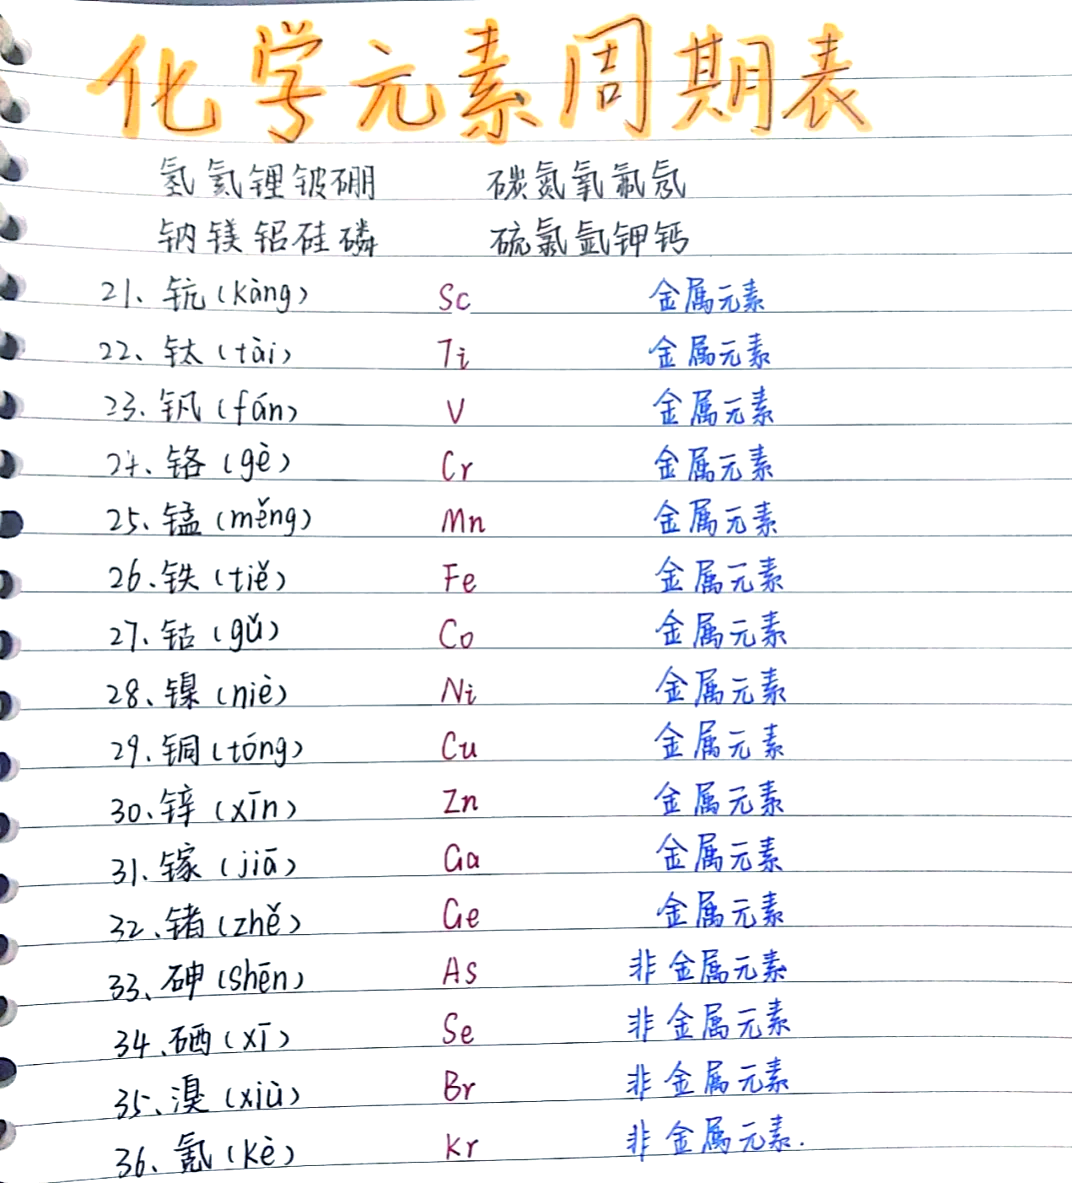 化学元素周期表
氢氦锂铍硼 碳氮氧氟氖
钠镁铝硅磷 硫氯氩钾钙
21、钪(kàng) Sc 金属元素
22、钛(tài) Ti 金属元素
23.钒(fán) V 金属元素
24、铬(gè) Cr 金属元素
25、锰(měng) Mn 金属元素
26.铁(tiě) Fe 金属元素
27、钴(gǔ) Co 金属元素
28、镍(niè) Ni 金属元素
29.铜(tóng) Cu 金属元素
30、锌(xīn) Zn 金属元素
31.镓(jiā) Ga 金属元素
32、锗(zhě) Ge 金属元素
33、砷(shēn) As 非金属元素
34、硒(xī) Se 非金属元素
35、溴(xiù) Br 非金属元素
36、氪(kè) Kr 非金属元素.